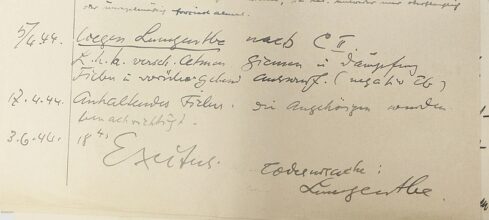 der unregelmäßig
5/4.44. Wegen Lungentbc nach C II.
L.h.a. versch. Atmen Giemen u. Dämpfung
Fieber u. vorübergehend Auswurf. (negativ Tb)
17.4.44. Anhaltendes Fieber. Die Angehörigen wurden
benachrichtigt.
3.6.44. 18 h
Exitus.
Todesursache:
Lungentbc.